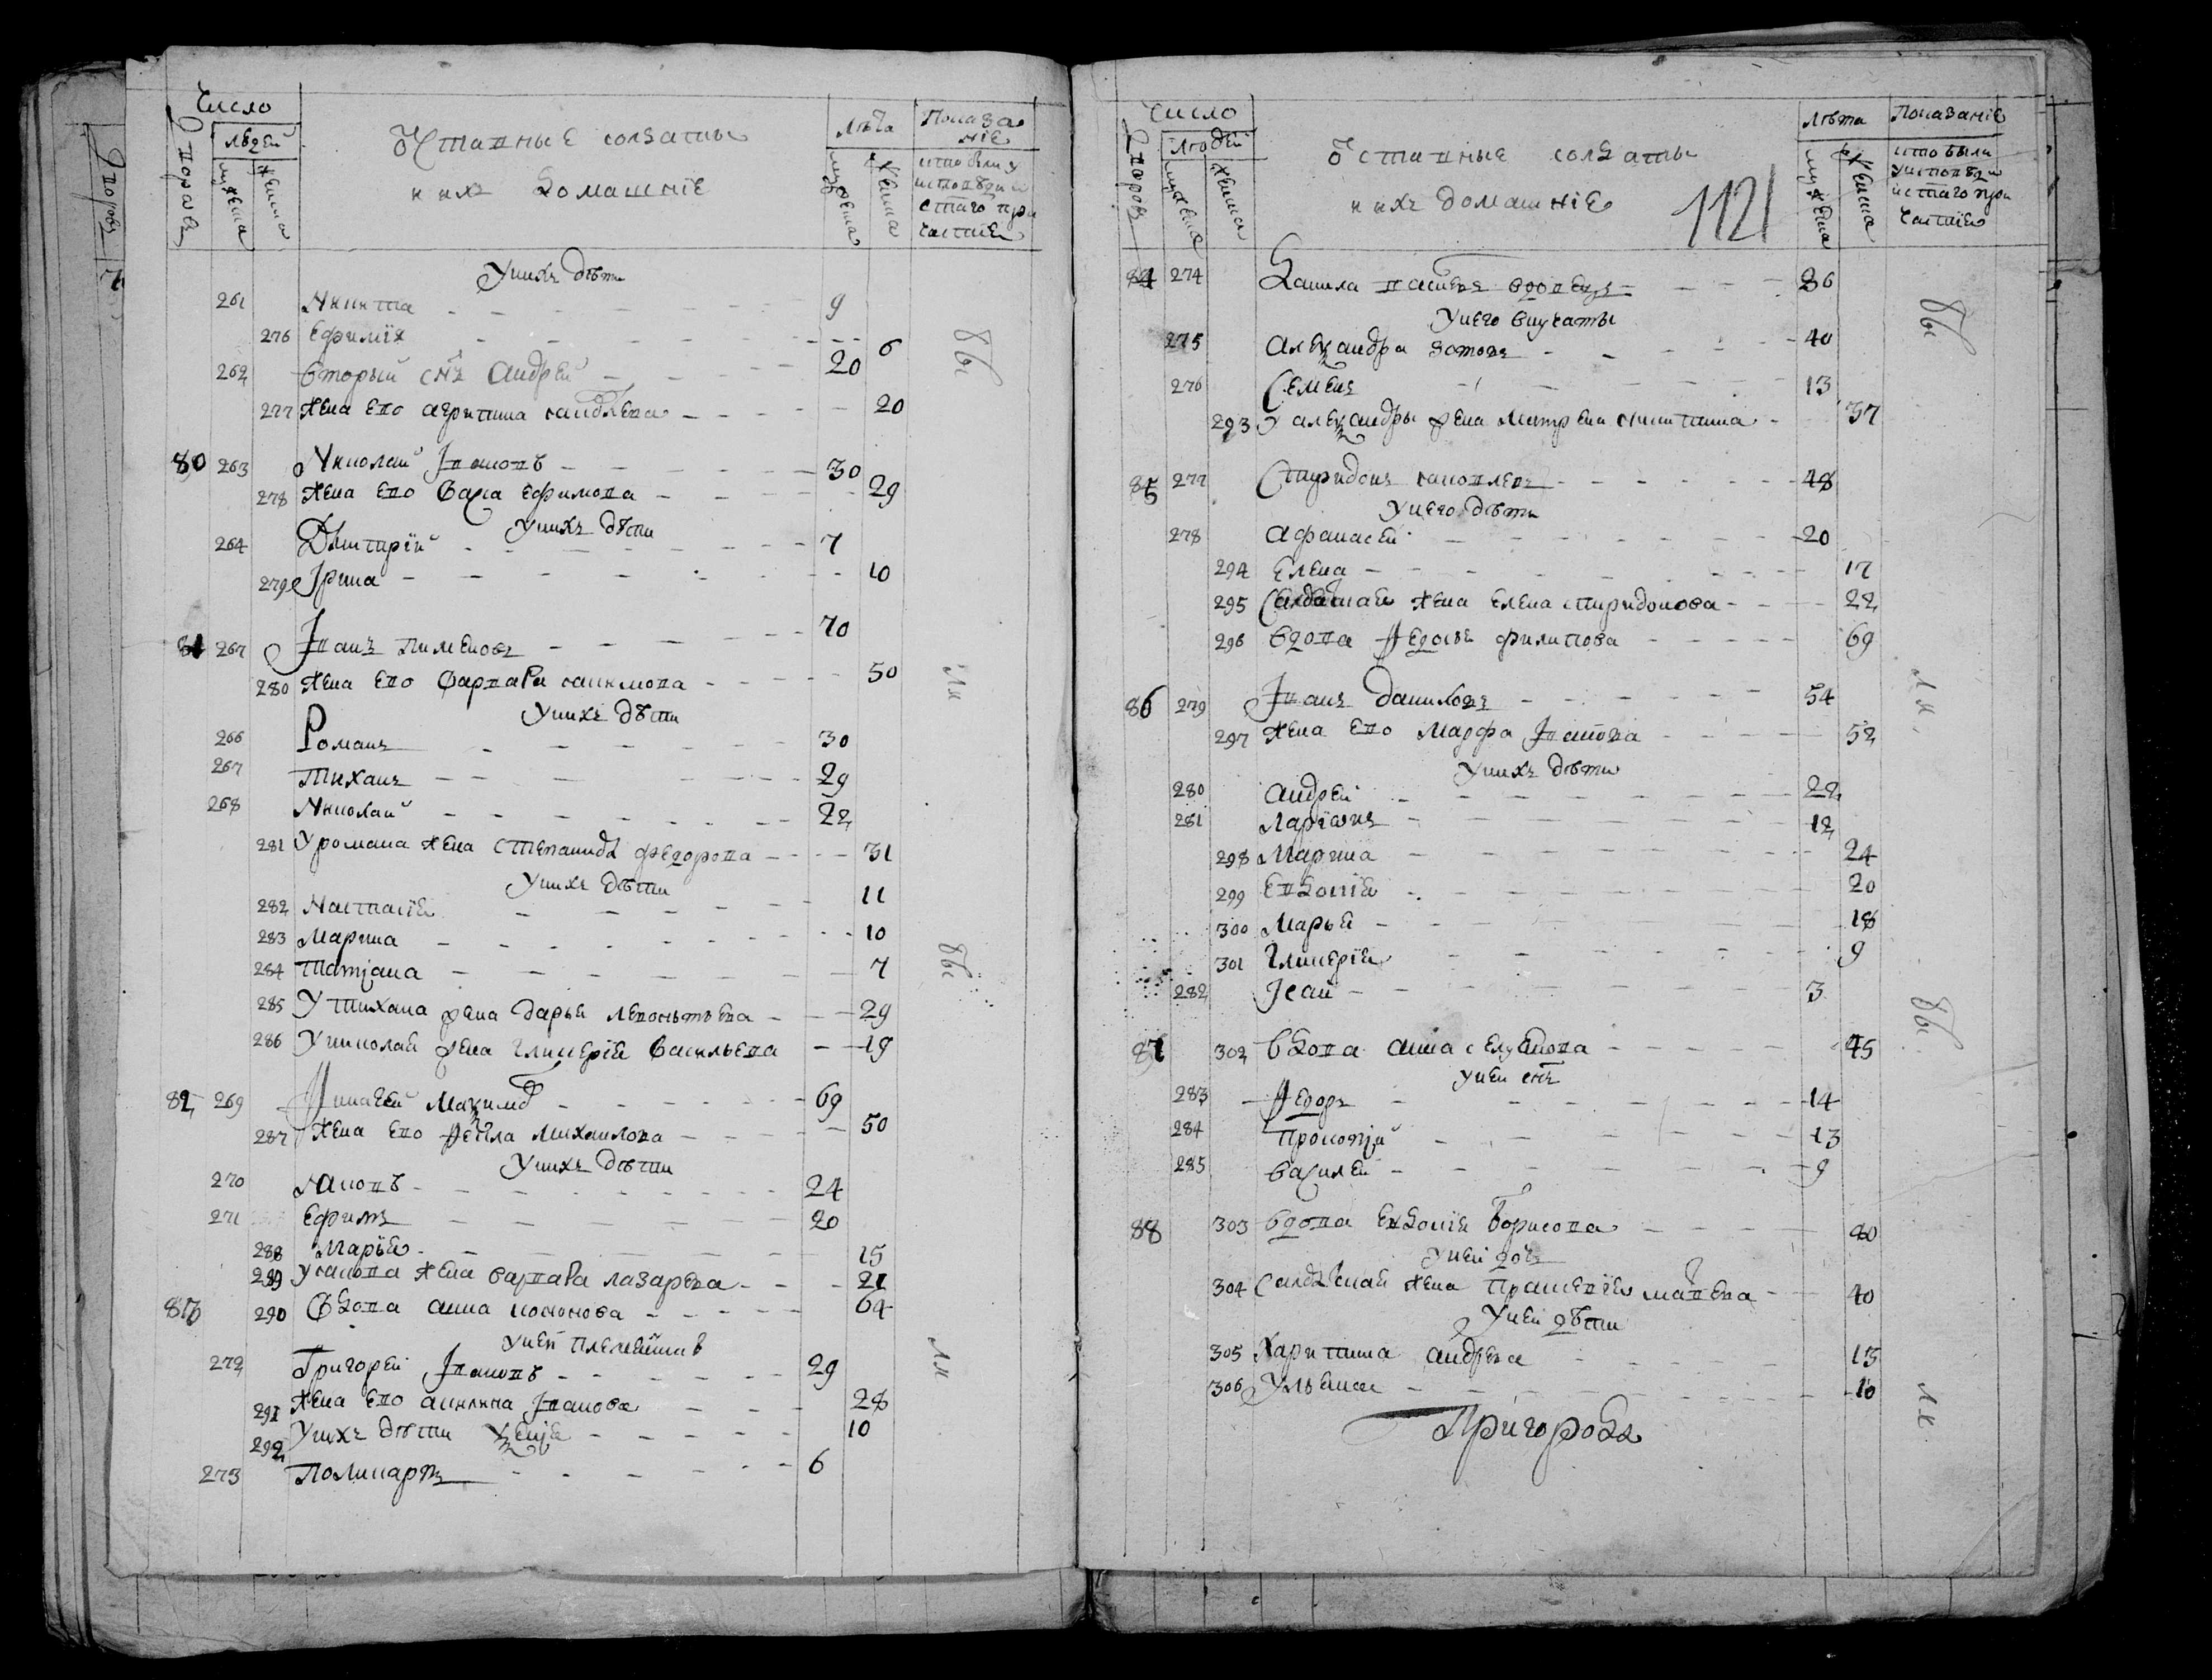 Число
людей
Дворовъ
мужеска
женска
Отставные солдаты
и ихъ домашніе
Лѣта
мужеска
женска
Показаніе
кто былъ у
исповеди и
стаго при
частия
У нихъ дѣти
261 Никита 9
276 Ефимия 6
262 вторый снъ Андрей 20
277 жена ево агрипина 20
80 263 Николай Івановъ 30
278 жена ево Васса ефимова 29
У нихъ дѣти
264 Дмитрій 7
279 Ірина 10
81 267 Іванъ Пименовъ 70
280 жена ево Варвара 50
У нихъ дѣти
266 Романъ 30
267 Тиханъ 29
268 Николай 22
281 У романа жена степанида федорова 31
У нихъ дѣти
282 Настасия 11
283 Марина 10
284 Татіана 7
285 У тихана жена дарья левонтьева 29
286 У николая жена глиперія васильева 19
82 269 Игнатей Маѯимъ 69
287 жена ево Ѳекла михаилова 50
У нихъ дѣти
270 Яковъ 24
271 Ефимъ 20
288 Марія 15
289 У якова жена варвара лазарева 21
83 290 вдова анна кононова 64
У ней племянникъ
272 Григорей Івановъ 29
291 жена ево акилина Іванова 28
292 У нихъ дѣти Ѯенія 10
273 Поликарпъ 6
вы
ли
вы
ли
Число
людей
Дворовъ
мужеска
женска
Отставные солдаты
и ихъ домашніе
1121
Лѣта
мужеска
женска
Показаніе
кто были
у исповеди
и стаго при
частия
84 274 Данила вдовецъ 86
У него внучаты
275 Алеѯандра зотовъ 40
276 Семенъ 13
293 У алеѯандры жена Матрена никитина 37
85 277 Спиридонъ яковлевъ 48
У него дѣти
278 Афанасей 20
294 Елена 17
295 Салдатская жена елена спиридонова 22
296 вдова Ѳедосья филипова 69
86 279 Іванъ даниловъ 54
297 жена ево Марфа Іванова 52
У нихъ дѣти
280 Андрей 22
281 Ларіонъ 12
298 Марина 24
299 Евдокія 20
300 Марья 18
301 Глинерія 9
282 Ісаи 3
87 302 вдова анна 45
У ней снъ
283 Ѳедоръ 14
284 Прокопій 13
285 Василей 9
88 303 вдова Евдокія Борисова 80
У ней дочь
304 Салдацкая жена Прасковія 40
У ней дѣти
305 Харитина андреева 13
306 Ульяна 10
Пригородъ
вы
ли
вы
ли